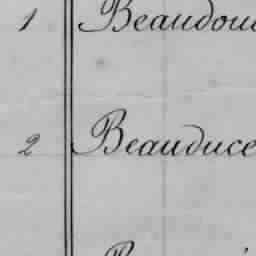 1 Beaudou
2 Beauduce